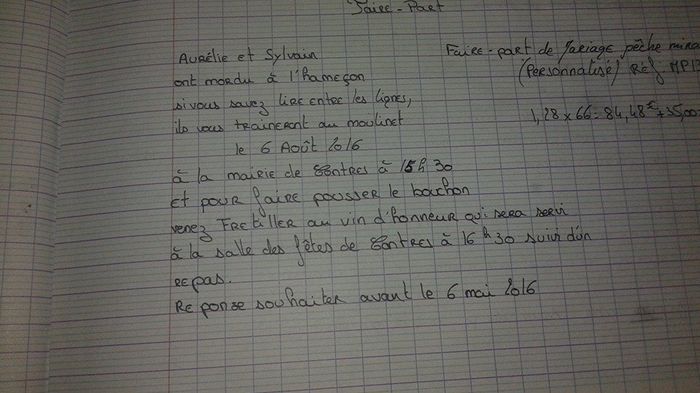 Faire-Part
Aurélie et Sylvain
ont mordu à l'hameçon
si vous savez lire entre les lignes,
ils vous traineront au moulinet
le 6 Août 2016
à la mairie de Contres à 15h30
Et pour faire pousser le bouchon
venez Fretiller au vin d'honneur qui sera servi
à la salle des fêtes de Contres à 16h30 suivi d'un
repas.
Reponse souhaiter avant le 6 mai 2016
Faire-part de Mariage pêche
(Personnalisé) Ref
1,28 x 66 = 84,48€ + 35,00